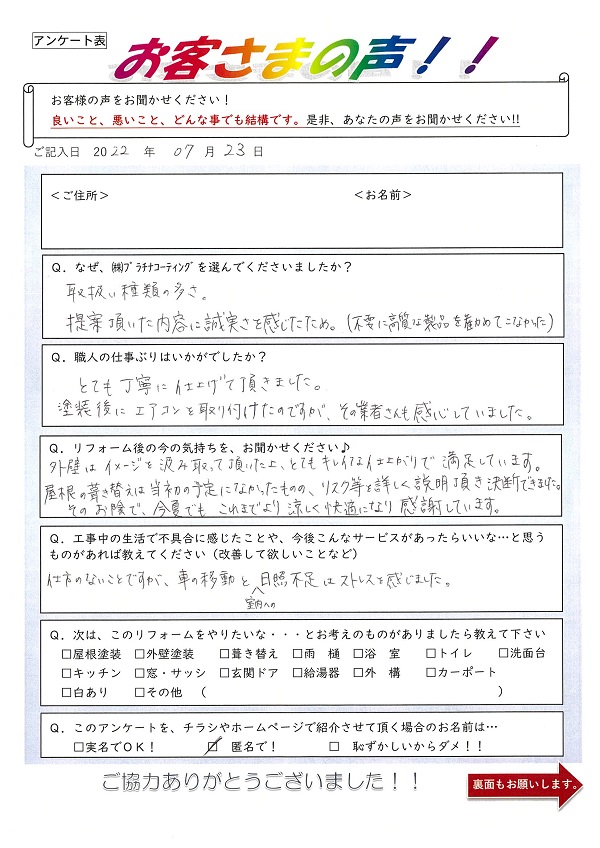 アンケート表
お客さまの声！！
お客様の声をお聞かせください！
良いこと、悪いこと、どんな事でも結構です。是非、あなたの声をお聞かせください!!
ご記入日 2022 年 07 月 23 日
＜ご住所＞ ＜お名前＞
Q．なぜ、㈱ﾌﾟﾗﾁﾅｺｰﾃｨﾝｸﾞを選んでくださいましたか？
取扱い種類の多さ。
提案頂いた内容に誠実さを感じたため。(不要に高質な製品を勧めてこなかった)
Q．職人の仕事ぶりはいかがでしたか？
とても丁寧に仕上げて頂きました。
塗装後にエアコンを取り付けたのですが、その業者さんも感心していました。
Q．リフォーム後の今の気持ちを、お聞かせください♪
外壁はイメージを汲み取って頂いた上、とてもキレイな仕上がりで満足しています。
屋根の葺き替えは当初の予定になかったものの、リスク等を詳しく説明頂き決断できました。
そのお陰で、今夏でもこれまでより涼しく快適になり感謝しています。
Q．工事中の生活で不具合に感じたことや、今後こんなサービスがあったらいいな…と思う
ものがあれば教えてください（改善して欲しいことなど）
仕方のないことですが、車の移動と日照不足はストレスを感じました。
室内への
Q．次は、このリフォームをやりたいな・・・とお考えのものがありましたら教えて下さい
□屋根塗装 □外壁塗装 □葺き替え □雨 樋 □浴 室 □トイレ □洗面台
□キッチン □窓・サッシ □玄関ドア □給湯器 □外 構 □カーポート
□白あり □その他 （ ）
Q．このアンケートを、チラシやホームページで紹介させて頂く場合のお名前は…
□実名でOK！ ☑ 匿名で！ □ 恥ずかしいからダメ！！
ご協力ありがとうございました！！
裏面もお願いします。